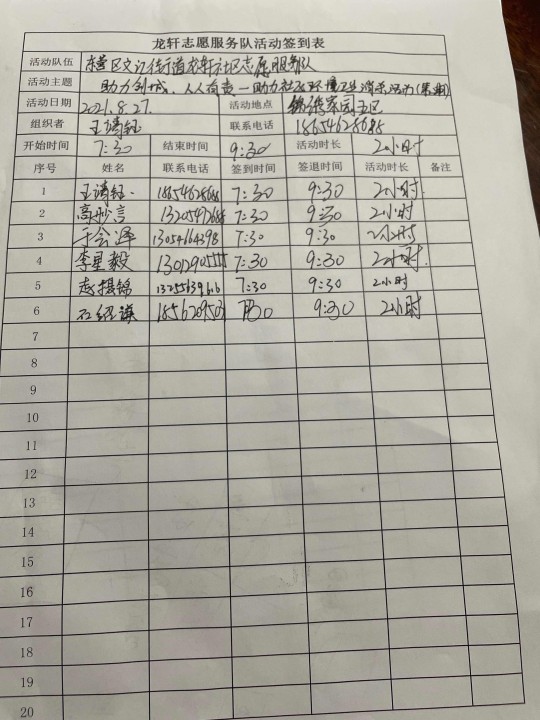 龙轩志愿服务队活动签到表
活动队伍 东营区文汇街道龙轩社区志愿服务队
活动主题 助力创城,人人有责—助力社区环境卫生清洁活动
活动日期 2021.8.27. 活动地点 锦绣家园五区
组织者 王涛钰 联系电话
开始时间 7:30 结束时间 9:30 活动时长 2小时
序号 姓名 联系电话 签到时间 签退时间 活动时长 备注
1 王涛钰 7:30 9:30 2小时.
2 高妙言 7:30 9:30 2小时
3 于会泽 13054664398 7:30 9:30 2小时
4 李星毅 7:30 9:30 2小时.
5 赵振锦 7:30 9:30 2小时
6 石绍谦 18562095031 7:30 9:30 2小时
7
8
9
10
11
12
13
14
15
16
17
18
19
20